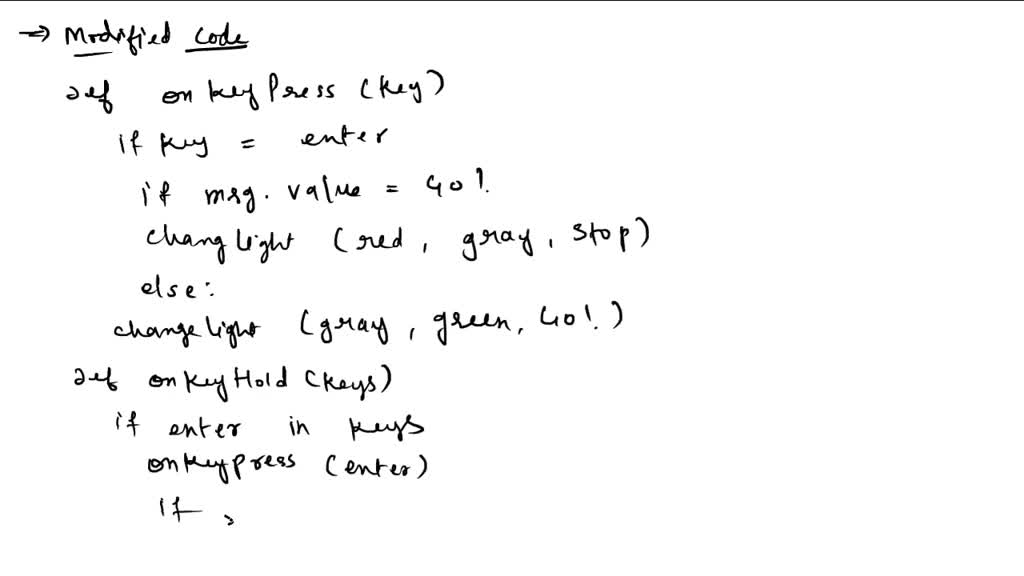 ⇒ Modified code
def onkeyPress (key)
if key = enter
if msg. value = Go!
chang light (red, gray, stop)
else:
change light (gray, green, Go!)
def onkeyHold (keys)
if enter in keys
onkeypress (enter)
if